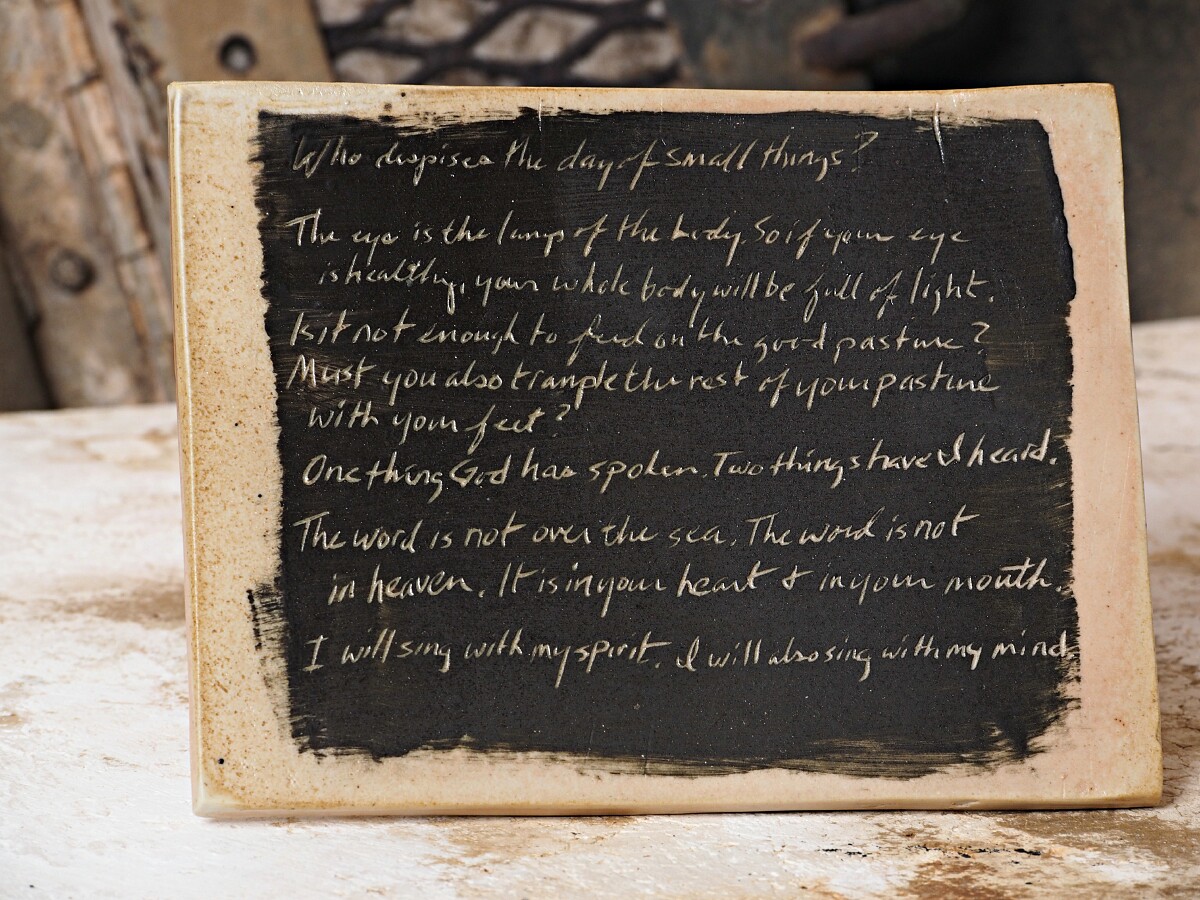 Who despises the day of small things?
The eye is the lamp of the body. So if your eye
is healthy, your whole body will be full of light.
Is it not enough to feed on the good pasture?
Must you also trample the rest of your pasture
with your feet?
One thing God has spoken. Two things have I heard.
The word is not over the sea. The word is not
in heaven. It is in your heart & in your mouth.
I will sing with my spirit. I will also sing with my mind.